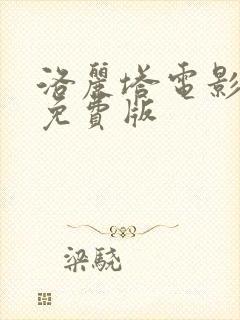 洛麗塔電影
免費版
梁驍